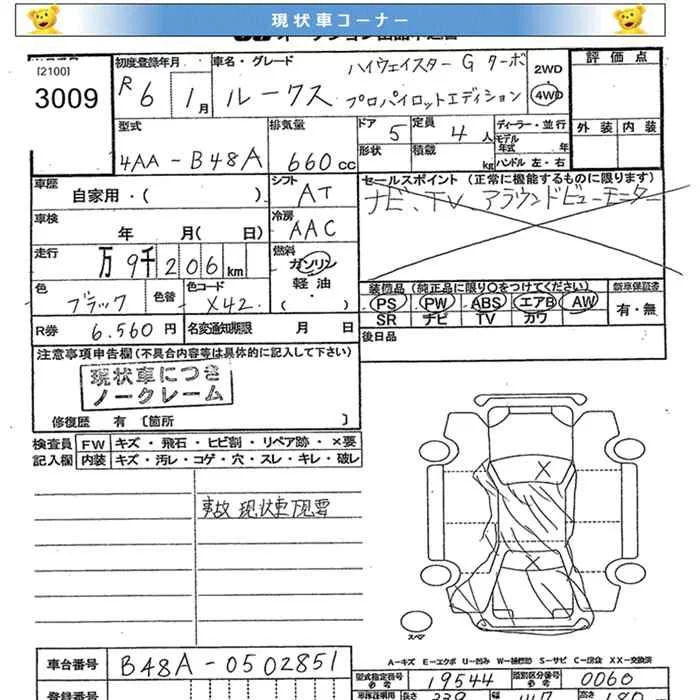 現状車コーナー
[2100]
3009
初度登録年月
R 6 1月
車名・グレード
ハイウェイスター G ターボ
ルークス プロパイロットエディション
2WD
4WD
評価点
外装 内装
型式
4AA-B48A
排気量
660cc
ドア 5
定員 4人
形状
積載 kg
ディーラー・並行
モデル年式 年
ハンドル 左・右
車歴
自家用・( )
シフト
AT
車検
年 月( 日)
冷房
AAC
走行
万9千206km
燃料
ガソリン
軽油
( ・ )
色
ブラック
色替
色コード
X42
R券 6.560円
名変通知期限 月 日
セールスポイント (正常に機能するものに限ります)
ナビ、TV アラウンドビューモニター
装備品 (純正品に限り○をつけてください)
PS PW ABS エアB AW
SR ナビ TV カワ
新車保証書
有・無
後日品
注意事項申告欄(不具合内容等は具体的に記入して下さい)
現状車につき
ノークレーム
修復歴 有 〔箇所 〕
検査員 FW キズ・飛石・ヒビ割・リペア跡・×要
記入欄 内装 キズ・汚レ・コゲ・穴・スレ・キレ・破レ
事故 現状車 下見要
X
X
スペア
A-キズ E-エクボ U-凹み W-補修跡 S-サビ C-腐食 XX-交換済
車台番号 B48A-0502851
型式指定番号 19544
参考
類別区分番号 0060
参考
登録番号
長さ 339 幅 147 高さ